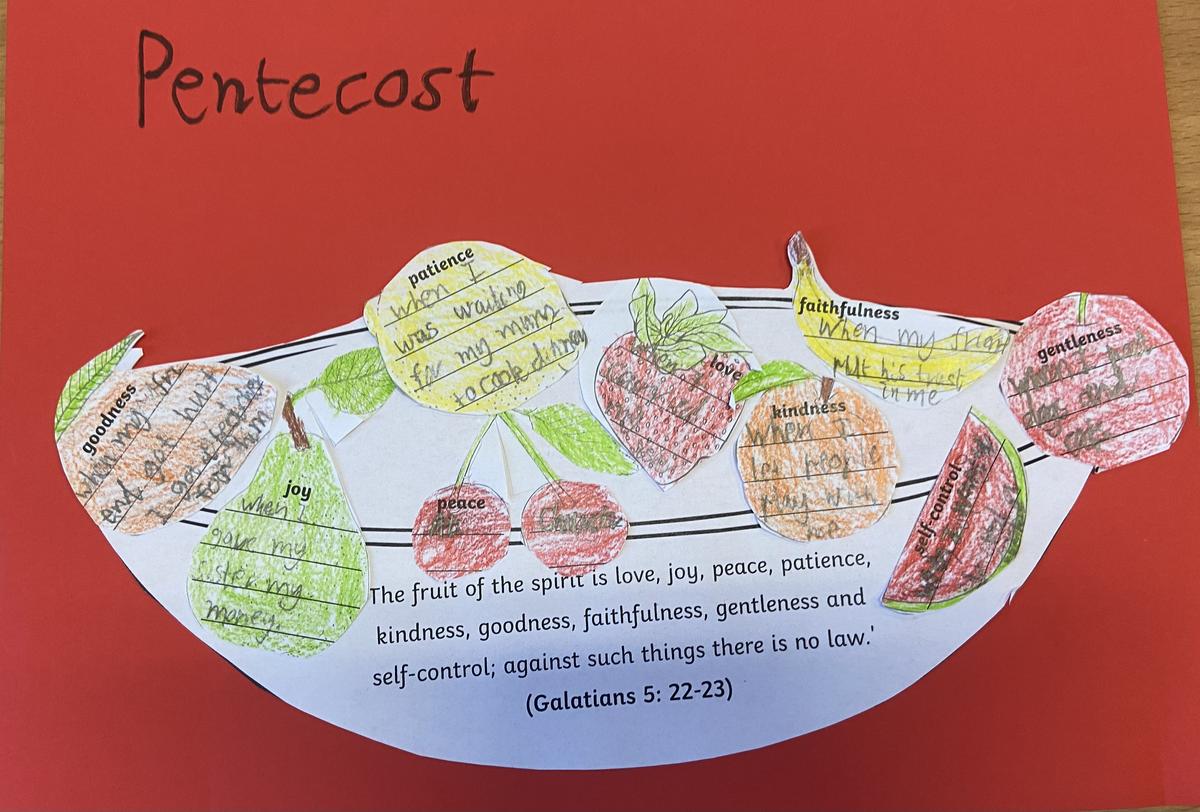 Pentecost
patience
When I
was waiting
for my mum
to cook dinner
faithfulness
When my frien
Put his trust
in me
love
gentleness
dog and
cat
goodness
when my fri
And got hurt
I got a teacher
for him
kindness
When I
let people
play with
me
joy
when I
gave my
sister my
money.
peace
Church
self-control
The fruit of the spirit is love, joy, peace, patience,
kindness, goodness, faithfulness, gentleness and
self-control; against such things there is no law.'
(Galatians 5: 22-23)